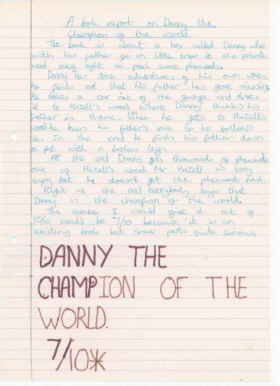 A book report on Danny the
Champion of the world
The book is about a boy called Danny who
with his father go in
and one night
Danny has some adventures of his own when
he finds out that his father has gone missing
he takes a car out of the garage and drives
to Hazell's wood where Danny thinks his
father is there. When he gets to Hazell's
wood he hears his father's voice so he
In the end he finds his father down
a pit with a broken leg.
At the end Danny gets thousands of pheasants
out of Hazell's wood Mr Hazell is very
angry but he doesn't get the pheasants back.
Right at the end everybody says that
Danny is the champion of the world.
The number I would give it out of
10 would be 7/10 because it is an
exciting book but some parts quite
DANNY THE
CHAMPION OF THE
WORLD.
7/10*